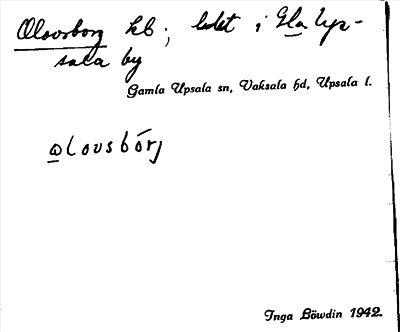 Olovsborg hb; ledet i Gla Up-
sala by
Gamla Upsala sn, Vaksala hd, Upsala l.
ωlovsbórj
Inga Böwdin 1942.